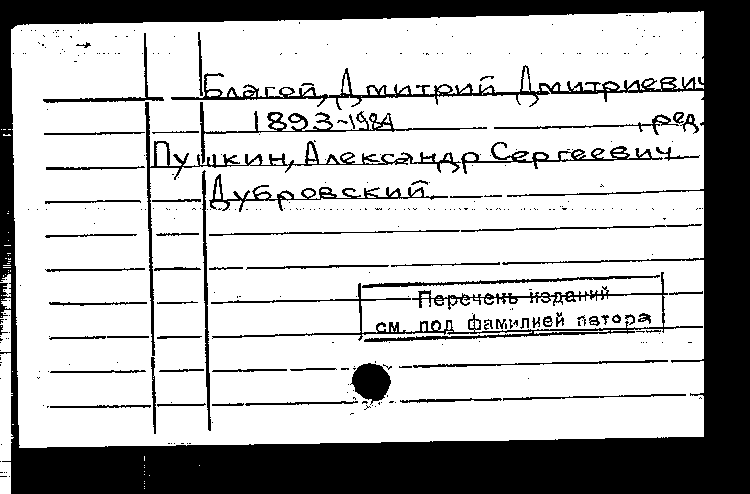 Благой, Дмитрий Дмитриевич
1893-1984 , ред.
Пушкин, Александр Сергеевич
Дубровский.
Перечень изданий
см. под фамилией автора